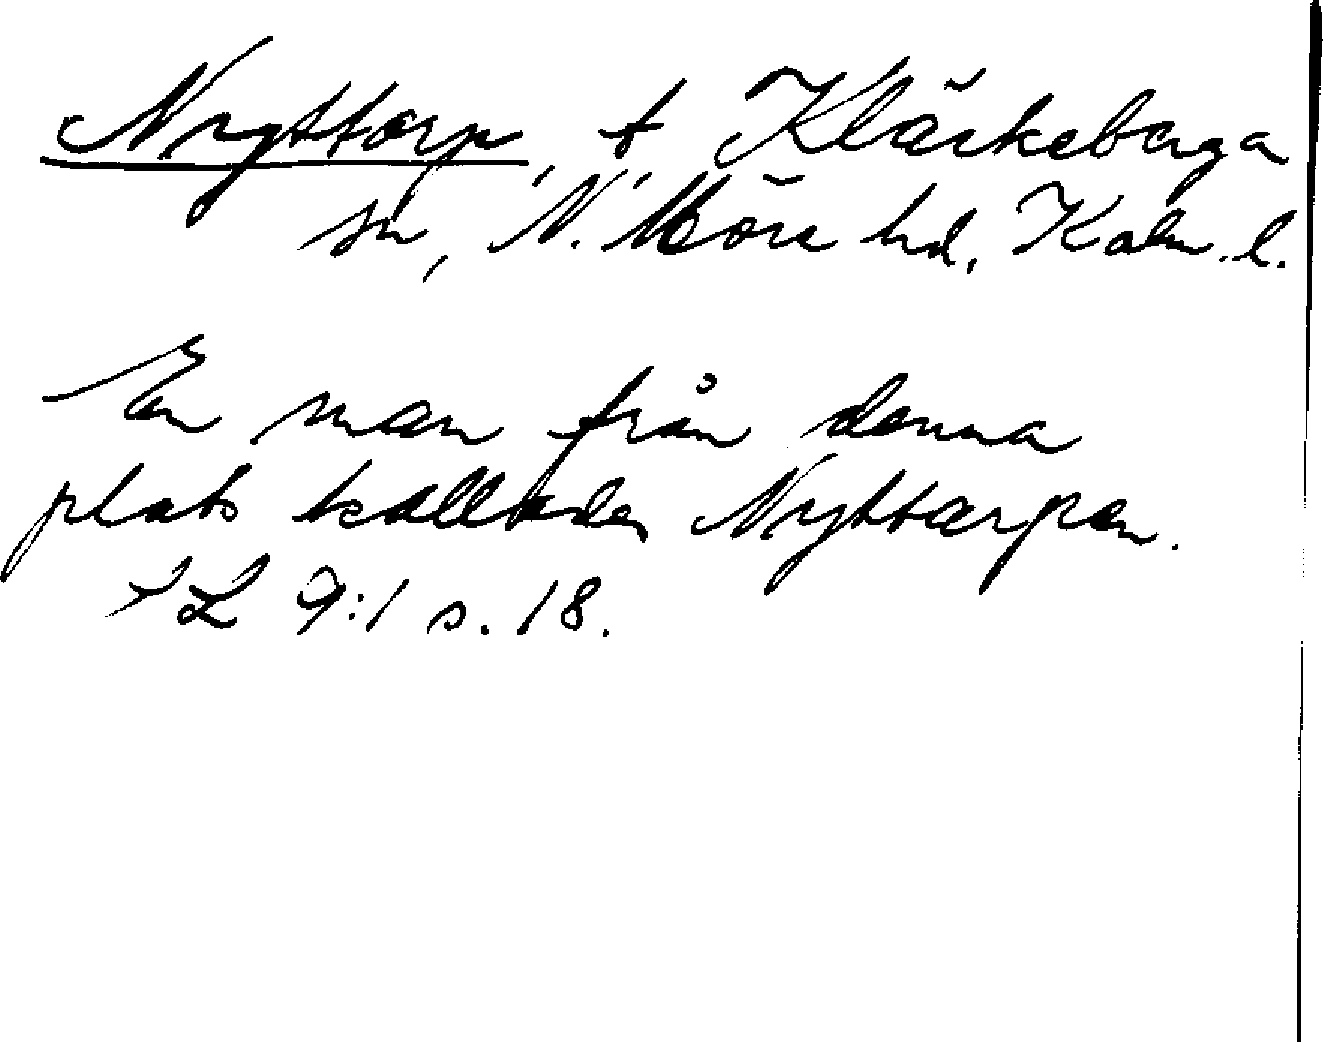 Nyttorp, t, Kläckeberga
sn, N. Möre hd, Kalm. l.
En man från denna
plats kallades Nyttorpen.
SL 9:1 s. 18.